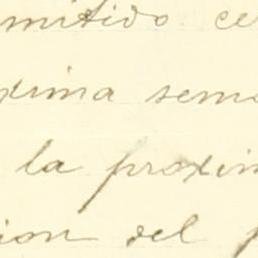 mitido ce
xima sema
la proxim
ion del p